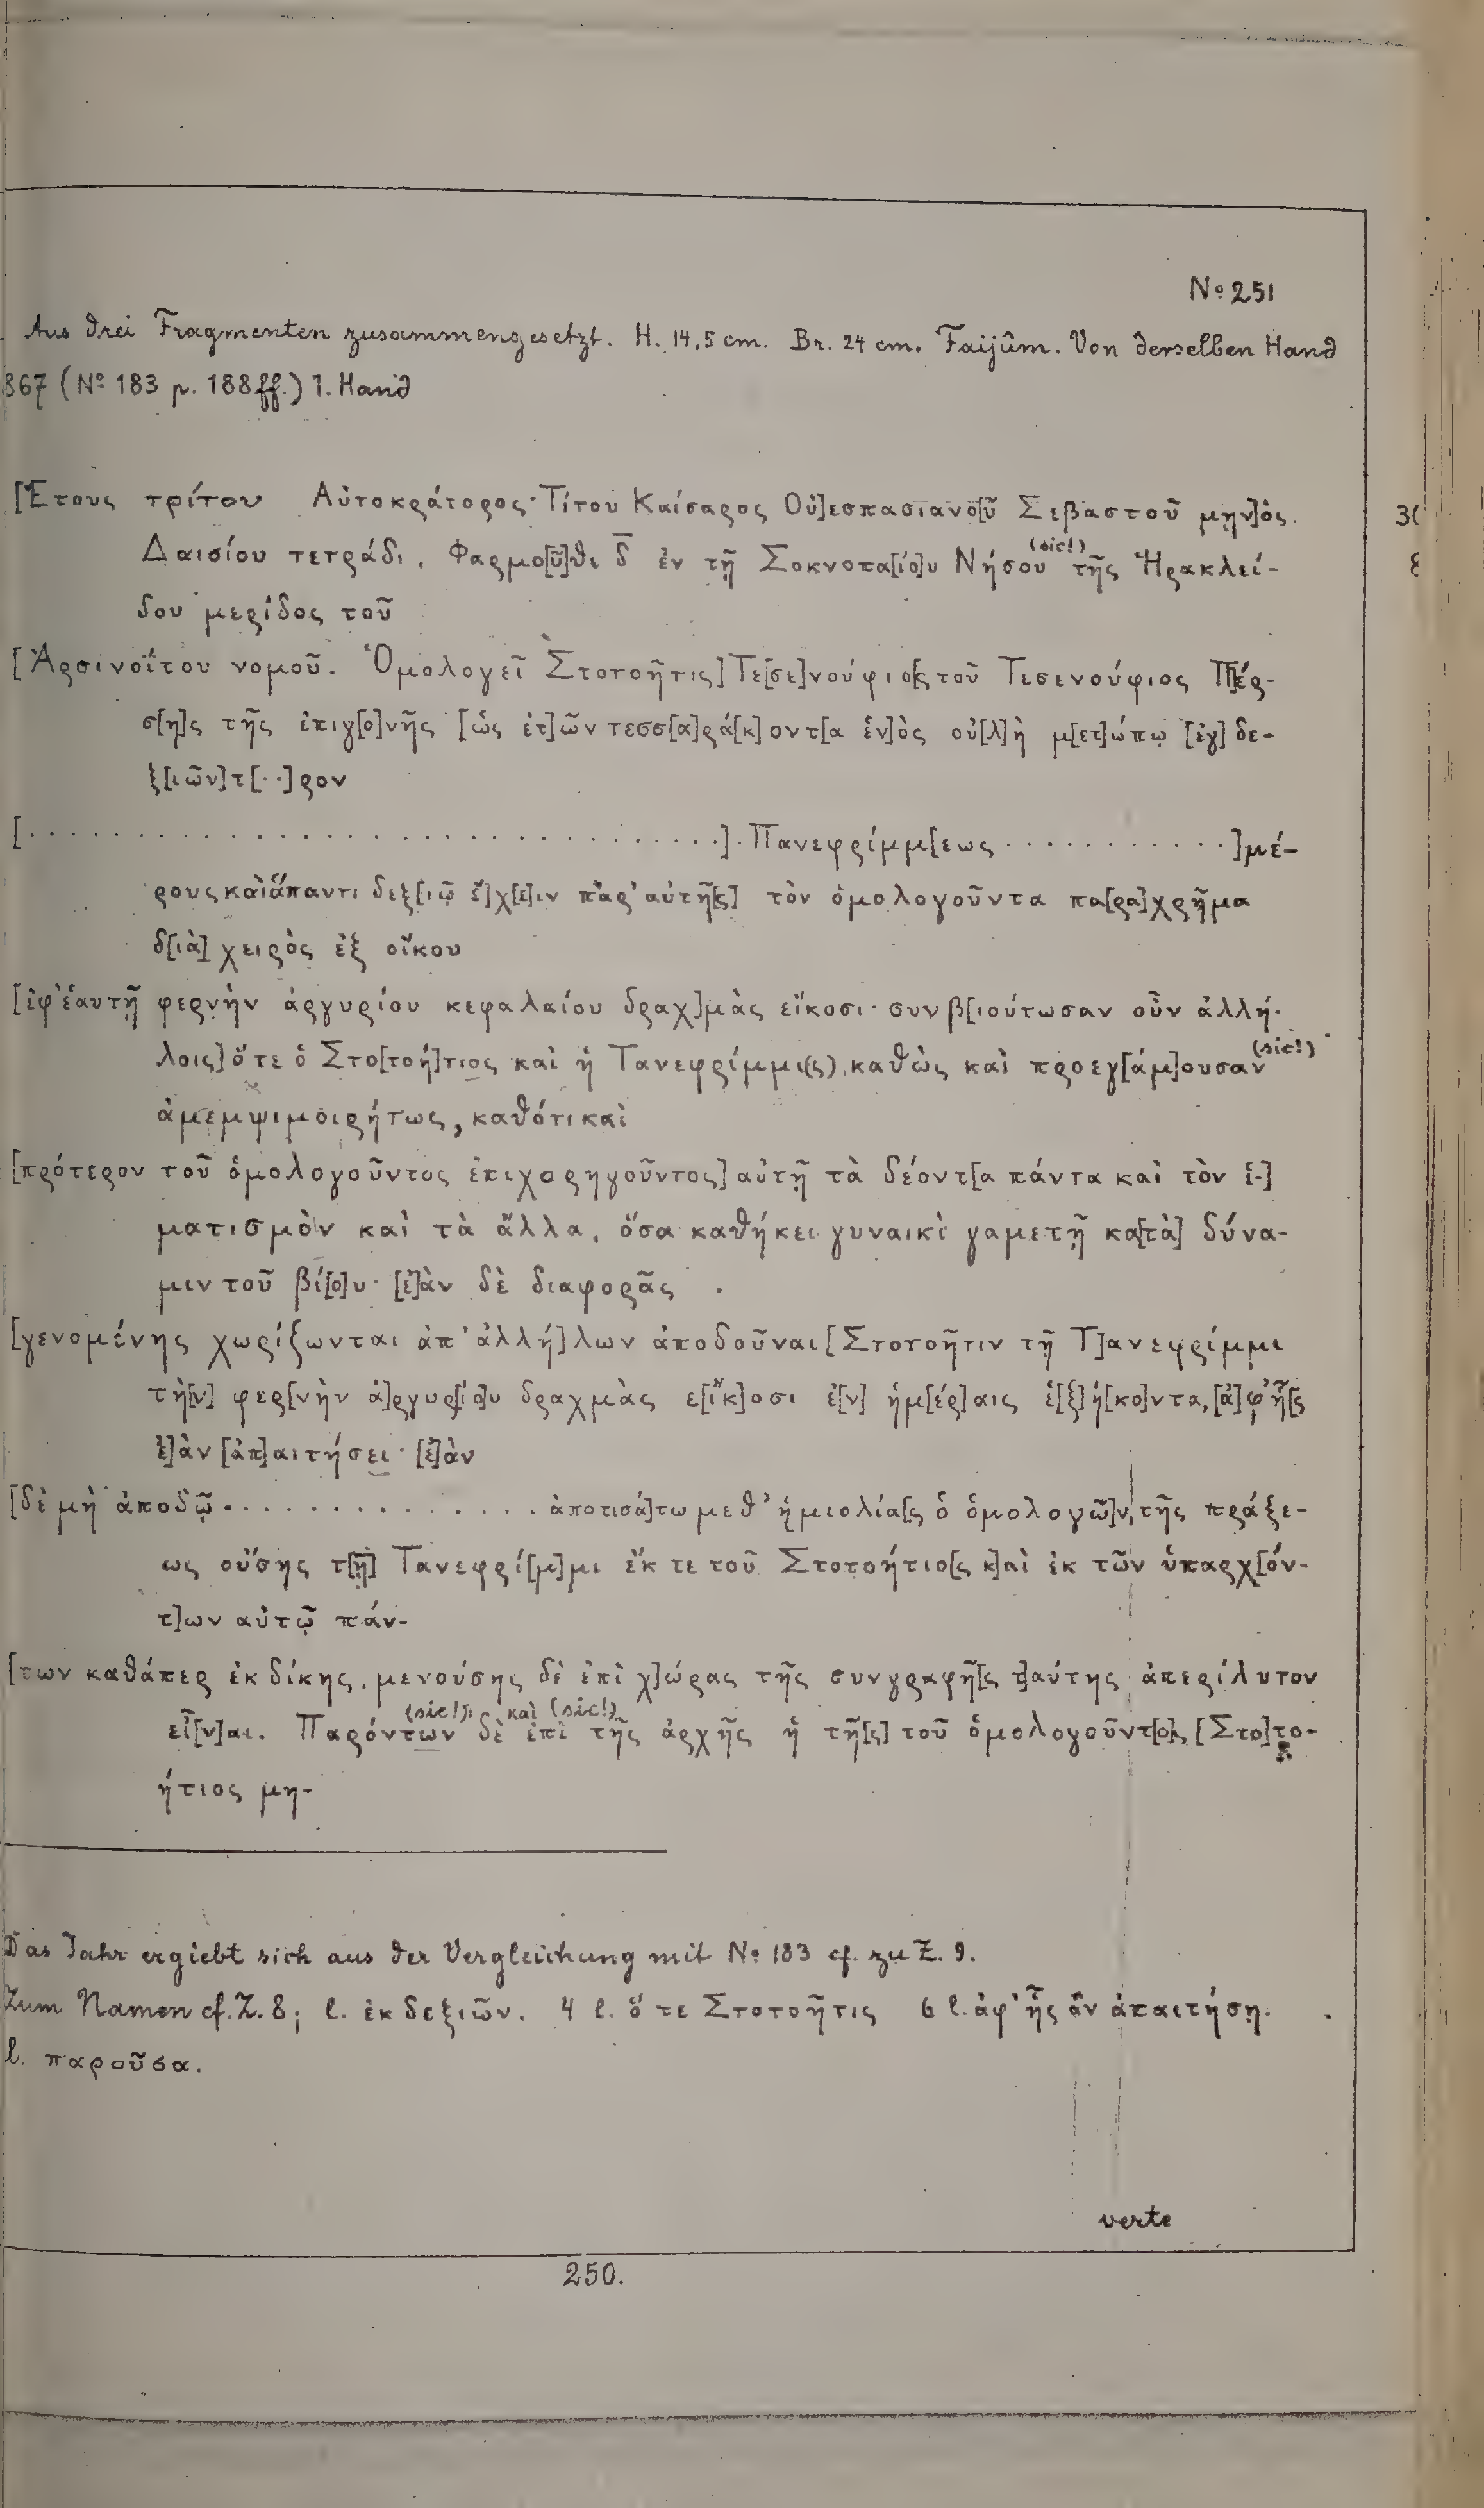 No 251
Aus drei Fragmenten zusammengesetzt. H. 14,5 cm. Br. 24 cm. Faijûm. Von derselben Hand
867 (No 183 p. 188ff.) 1. Hand
[Ἔτους τρίτου Αὐτοκράτορος Τίτου Καίσαρος Οὐ]εσπασιανο[ῦ Σεβαστοῦ μην]ὸς.
Δαισίου τετράδι, Φαρμο[ῦ]θι δ̅ ἐν τῇ Σοκνοπα[ίο]υ Νήσου (sic!) τῆς Ἡρακλεί-
δου μερίδος τοῦ
[Ἀρσινοΐτου νομοῦ. Ὁμολογεῖ Στοτοῆτις] Τε[σε]νούφιο[ς τοῦ Τεσενούφιος Π]έρ-
σ[η]ς τῆς ἐπιγ[ο]νῆς [ὡς ἐτ]ῶν τεσσ[α]ρά[κ]οντ[α ἑν]ὸς οὐ[λ]ὴ μ[ετ]ώπῳ [ἐγ] δε-
ξ[ιῶν] τ[··]ρον
[·····························]. Πανεφρίμμ[εως ···········] μέ-
ρους καὶ ἅπαντι δεξ[ιῷ ἔ]χ[ε]ιν παρ' αὐτῆ[ς] τὸν ὁμολογοῦντα πα[ρα]χρῆμα
δ[ιὰ] χειρὸς ἐξ οἴκου
[ἐφ' ἑαυτῇ φερνὴν ἀργυρίου κεφαλαίου δραχ]μὰς εἴκοσι· συνβ[ιούτωσαν οὖν ἀλλή-
λοις] ὅτε ὁ Στο[τοή]τιος καὶ ἡ Τανεφρίμμι(ς), καθὼς καὶ προεγ[άμ]ουσαν (sic!)
ἀμεμψιμοιρήτως, καθότι καὶ
[πρότερον τοῦ ὁμολογοῦντος ἐπιχορηγοῦντος] αὐτῇ τὰ δέοντ[α πάντα καὶ τὸν ἱ-]
ματισμὸν καὶ τὰ ἄλλα, ὅσα καθήκει γυναικὶ γαμετῇ κα[τὰ] δύνα-
μιν τοῦ βί[ο]υ· [ἐ]ὰν δὲ διαφορᾶς
[γενομένης χωρίζωνται ἀπ' ἀλλή]λων ἀποδοῦναι [Στοτοῆτιν τῇ Τ]ανεφρίμμι
τὴ[ν] φερ[νὴν ἀ]ργυρ[ίο]υ δραχμὰς ε[ἴκ]οσι ἐ[ν] ἡμ[έρ]αις ἑ[ξ]ή[κο]ντα, [ἀ]φ' ἧ[ς
ἐ]ὰν [ἀπ]αιτήσει· [ἐ]ὰν
[δὲ μὴ ἀποδῷ·············· ἀποτισά]τω μεθ' ἡμιολία[ς ὁ ὁμολογῶ]ν, τῆς πράξε-
ως οὔσης τ[ῇ] Τανεφρί[μ]μι ἔκ τε τοῦ Στοτοήτιο[ς κ]αὶ ἐκ τῶν ὑπαρχ[όν-
τ]ων αὐτῷ πάν-
[των καθάπερ ἐκ δίκης, μενούσης δὲ ἐπὶ χ]ώρας τῆς συνγραφῆ[ς τ]αύτης ἀπερίλυτον
εἶ[ν]αι. Παρόντων (sic!) δὲ καὶ (sic!) ἐπὶ τῆς ἀρχῆς ἡ τῆ[ς] τοῦ ὁμολογοῦντ[ος] [Στο]το-
ήτιος μη-
Das Jahr ergiebt sich aus der Vergleichung mit No 183 cf. zu Z. 9.
Zum Namen cf. Z. 8; l. ἐκ δεξιῶν. 4 l. ὅ τε Στοτοῆτις 6 l. ἀφ' ἧς ἂν ἀπαιτήσῃ.
l. παροῦσα.
verte
250.